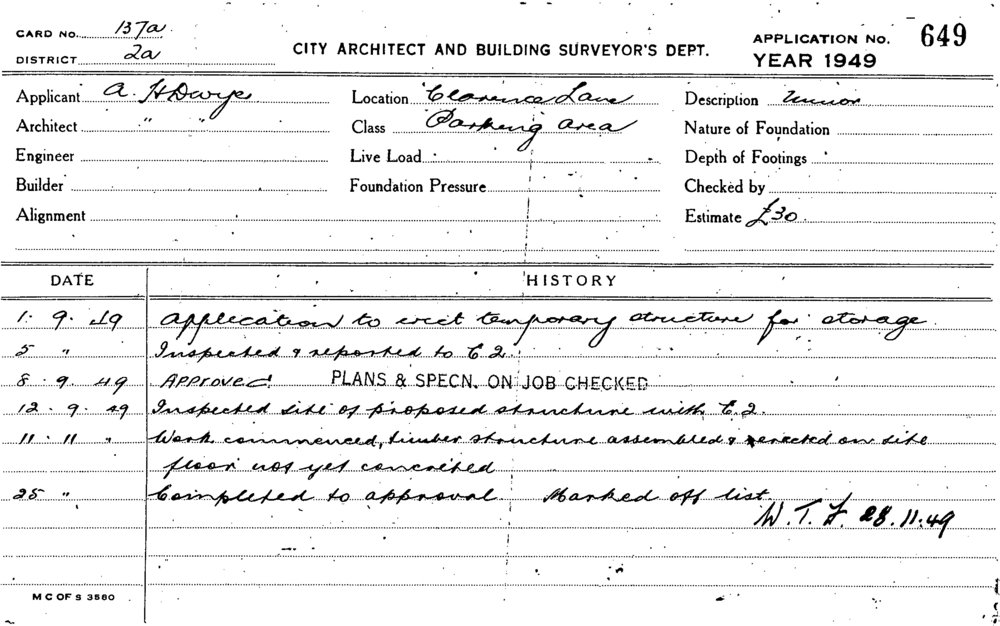 CARD No. 137a
DISTRICT 2a
CITY ARCHITECT AND BUILDING SURVEYOR'S DEPT.
APPLICATION No. 649
YEAR 1949
Applicant A. H Dwyer
Location Clarence Lane
Description Minor
Architect " "
Class Parking area
Nature of Foundation
Engineer
Live Load
Depth of Footings
Builder
Foundation Pressure
Checked by
Alignment
Estimate £30
DATE HISTORY
1. 9. 49 Application to erect temporary structure for storage
5 " Inspected & reported to C 2.
8. 9. 49 APPROVED PLANS & SPECN. ON JOB CHECKED
12. 9. 49 Inspected site of proposed structure with C. 2.
11. 11 " Work commenced, timber structure assembled & erected on site
floor not yet concreted
25 " Completed to approval Marked off list
W. T. 28.11.49
M C OF S 3580